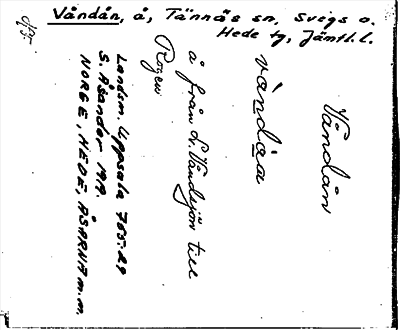 Våndån, å, Tännäs sn, Svegs o.
Hede tg, Jämtl. l.
Våndån
våndåa
å från L. Våndsjön till
Rogen
Landsm. Uppsala 765:29
S. Åsander 1919.
NORGE, HEDE, ÅSARNA m.m.